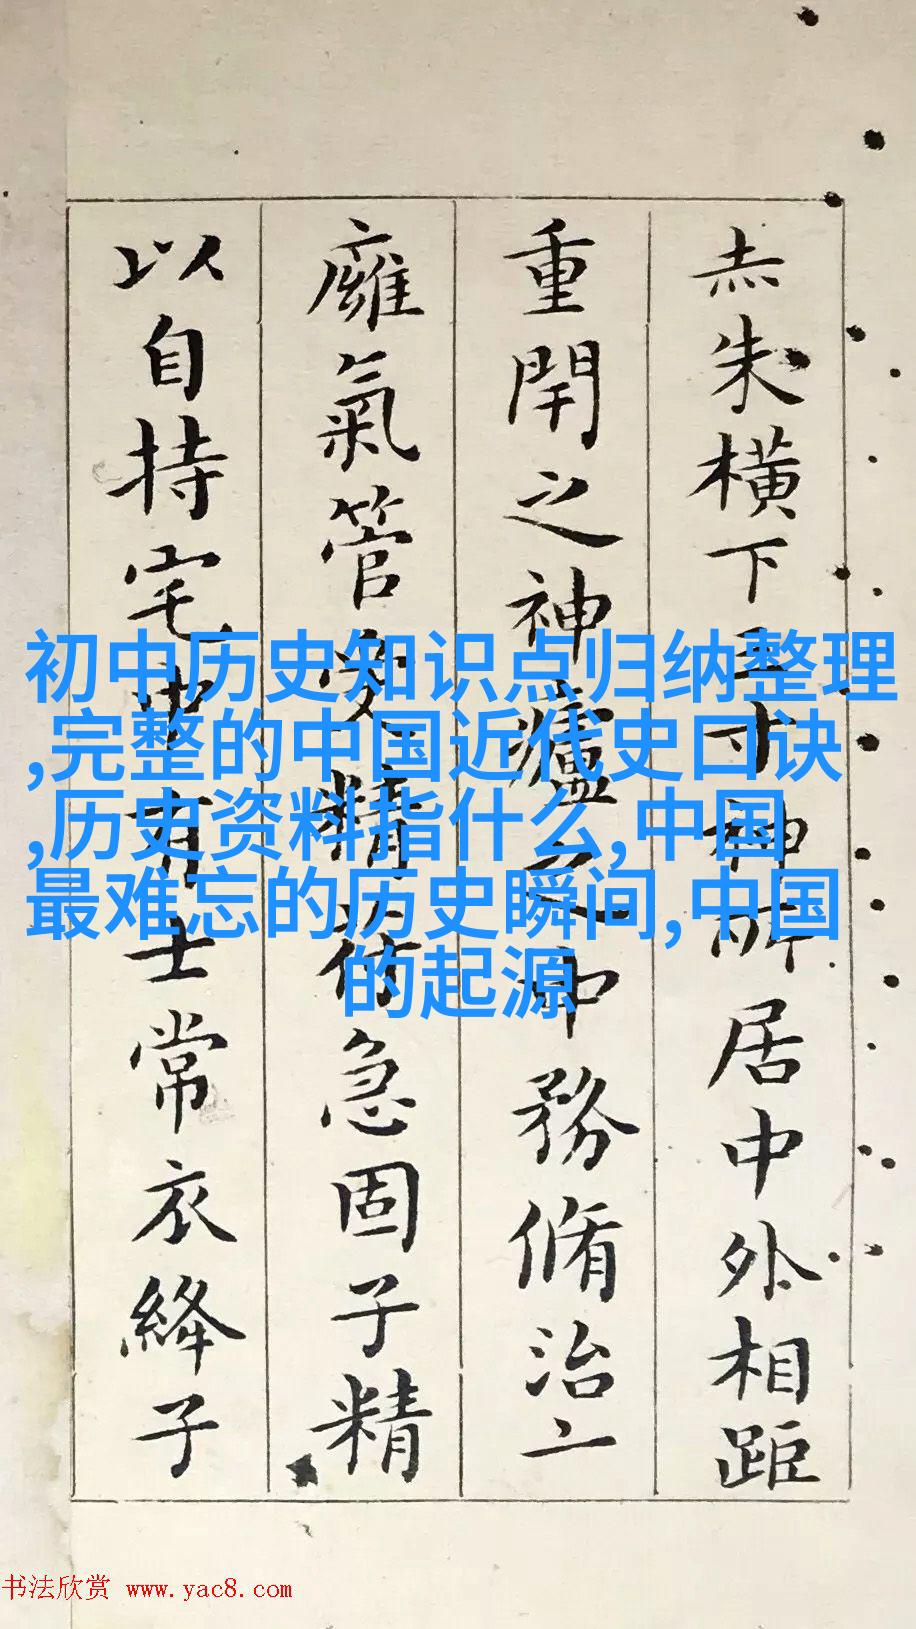 赤朱橫下三寸神所居中外相距
重閈之神廬之中務脩治二
癰氣管受精苻急固子精
以自持宅中有士常衣絳子
初中历史知识点归纳整理
,完整的中国近代史口诀
,历史资料指什么,中国
最难忘的历史瞬间,中国
的起源
书法欣赏 www.yac8.com